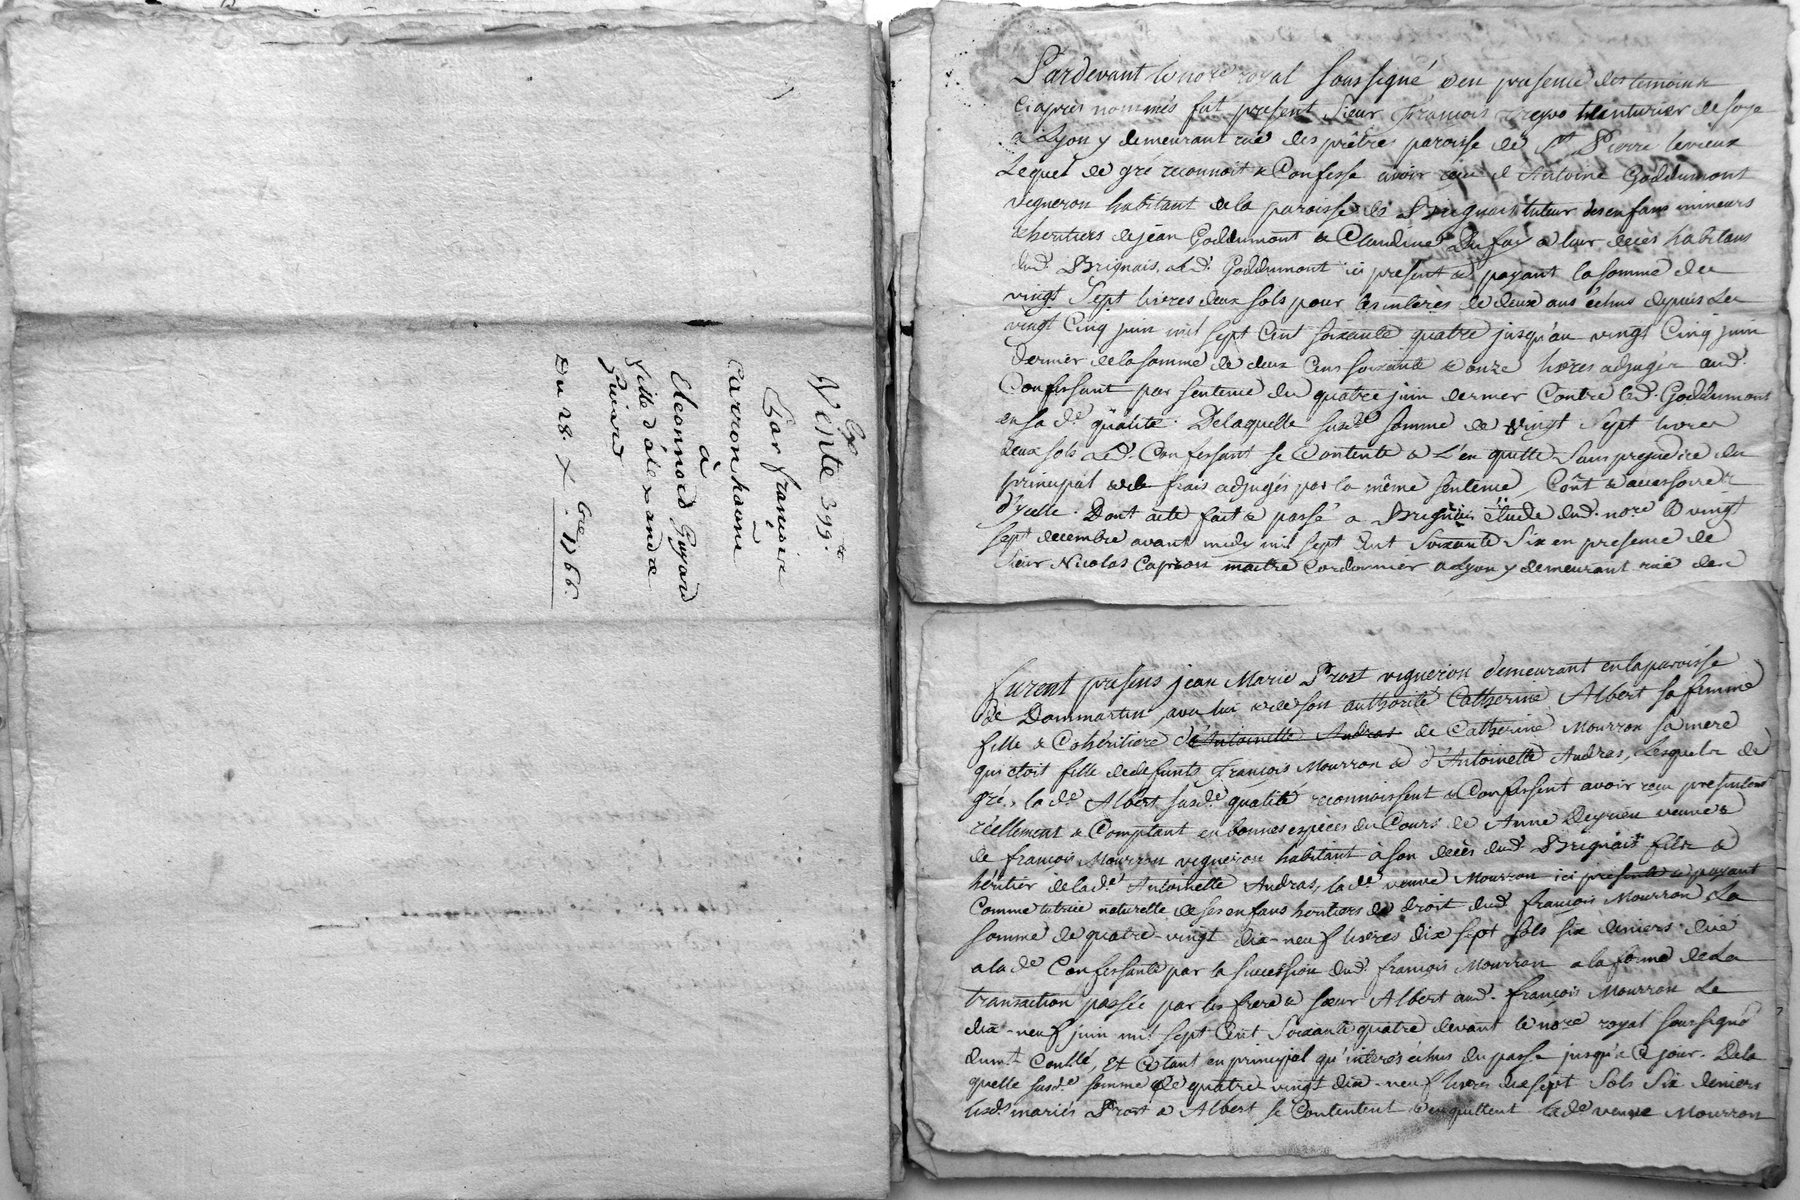 Exp.
Vente 399.
Par francoise
Carron
à
Eleonnord Guyard
fille d'alexandre
Guiard
Du 28. Xbre 1766.
Pardevant le nore royal soussigné & en presence des temoins
ci après nommés fut present Sieur François teinturier de soye
a Lyon y demeurant rue des prêtres paroisse de St Pierre levieux
Lequel de gré reconnoit & Confesse avoir reçu d'Antoine Goddumont
vigneron habitant de la paroisse de Brignais tuteur des enfans mineurs
& heritiers de jean Goddumont & Claudine Dufay a leur decès habitans
dud. Brignais, led. Goddumont ici present & payant la somme de
vingt Sept livres deux sols pour les interès de deux ans échus depuis Le
vingt Cinq juin mil sept Cent soixante quatre jusqu'au vingt Cinq juin
dernier de la somme de deux Cens soixante & onze livres adjugée aud.
Confessant par sentence du quatre juin dernier Contre led. Goddumont
en sa de. qualité. De laquelle susde somme de vingt Sept livres
deux sols Led. Confessant se Contente & L'en quitte Sans prejudice du
principal & de frais adjugés par la même sentence, Coût & accessoires
d'ycelle. Dont acte fait & passé a Brignais étude dud. nore le vingt
sept decembre avant midy mil sept Cent Soixante Six en presence de
Sieur Nicolas Capron maitre Cordonnier a Lyon y demeurant rue de
furent presens jean Marie Prost vigneron demeurant en la paroisse
de Dommartin, avec lui & de son authorité Catherine Albert sa femme
fille & Cohéritiere d'Antoinette Andras de Catherine Mourron sa mere
qui etoit fille de defunts François Mourron & d'Antoinette Andras, Lesquels de
gré, la de Albert susde qualité reconnoissent & Confessent avoir reçu presentement
réellement & Comptant en bonnes especes du Cours de Anne Deyrieu veuve
de françois Mourron vigneron habitant à son decès dud. Brignais fils &
héritier de la de Antoinette Andras, la de veuve Mourron ici presente & payant
Comme tutrice naturelle de ses enfans heritiers de droit dud. françois Mourron La
somme de quatre-vingt dix-neuf livres dix sept sols six deniers due
a la de Confessante par la succession dud. françois Mourron a la forme de La
transaction passée par les frere & sœur Albert aud. françois Mourron Le
dix-neuf juin mil sept Cent Soixante quatre devant le nore royal soussigné
dument Conllé, Et Ce tant en principal qu'interès échus du passé jusqu'a Ce jour. De la
quelle susde somme de quatre-vingt dix-neuf livres dix sept Sols Six deniers
lesds mariés Prost & Albert se Contentent & en quittent la de veuve Mourron